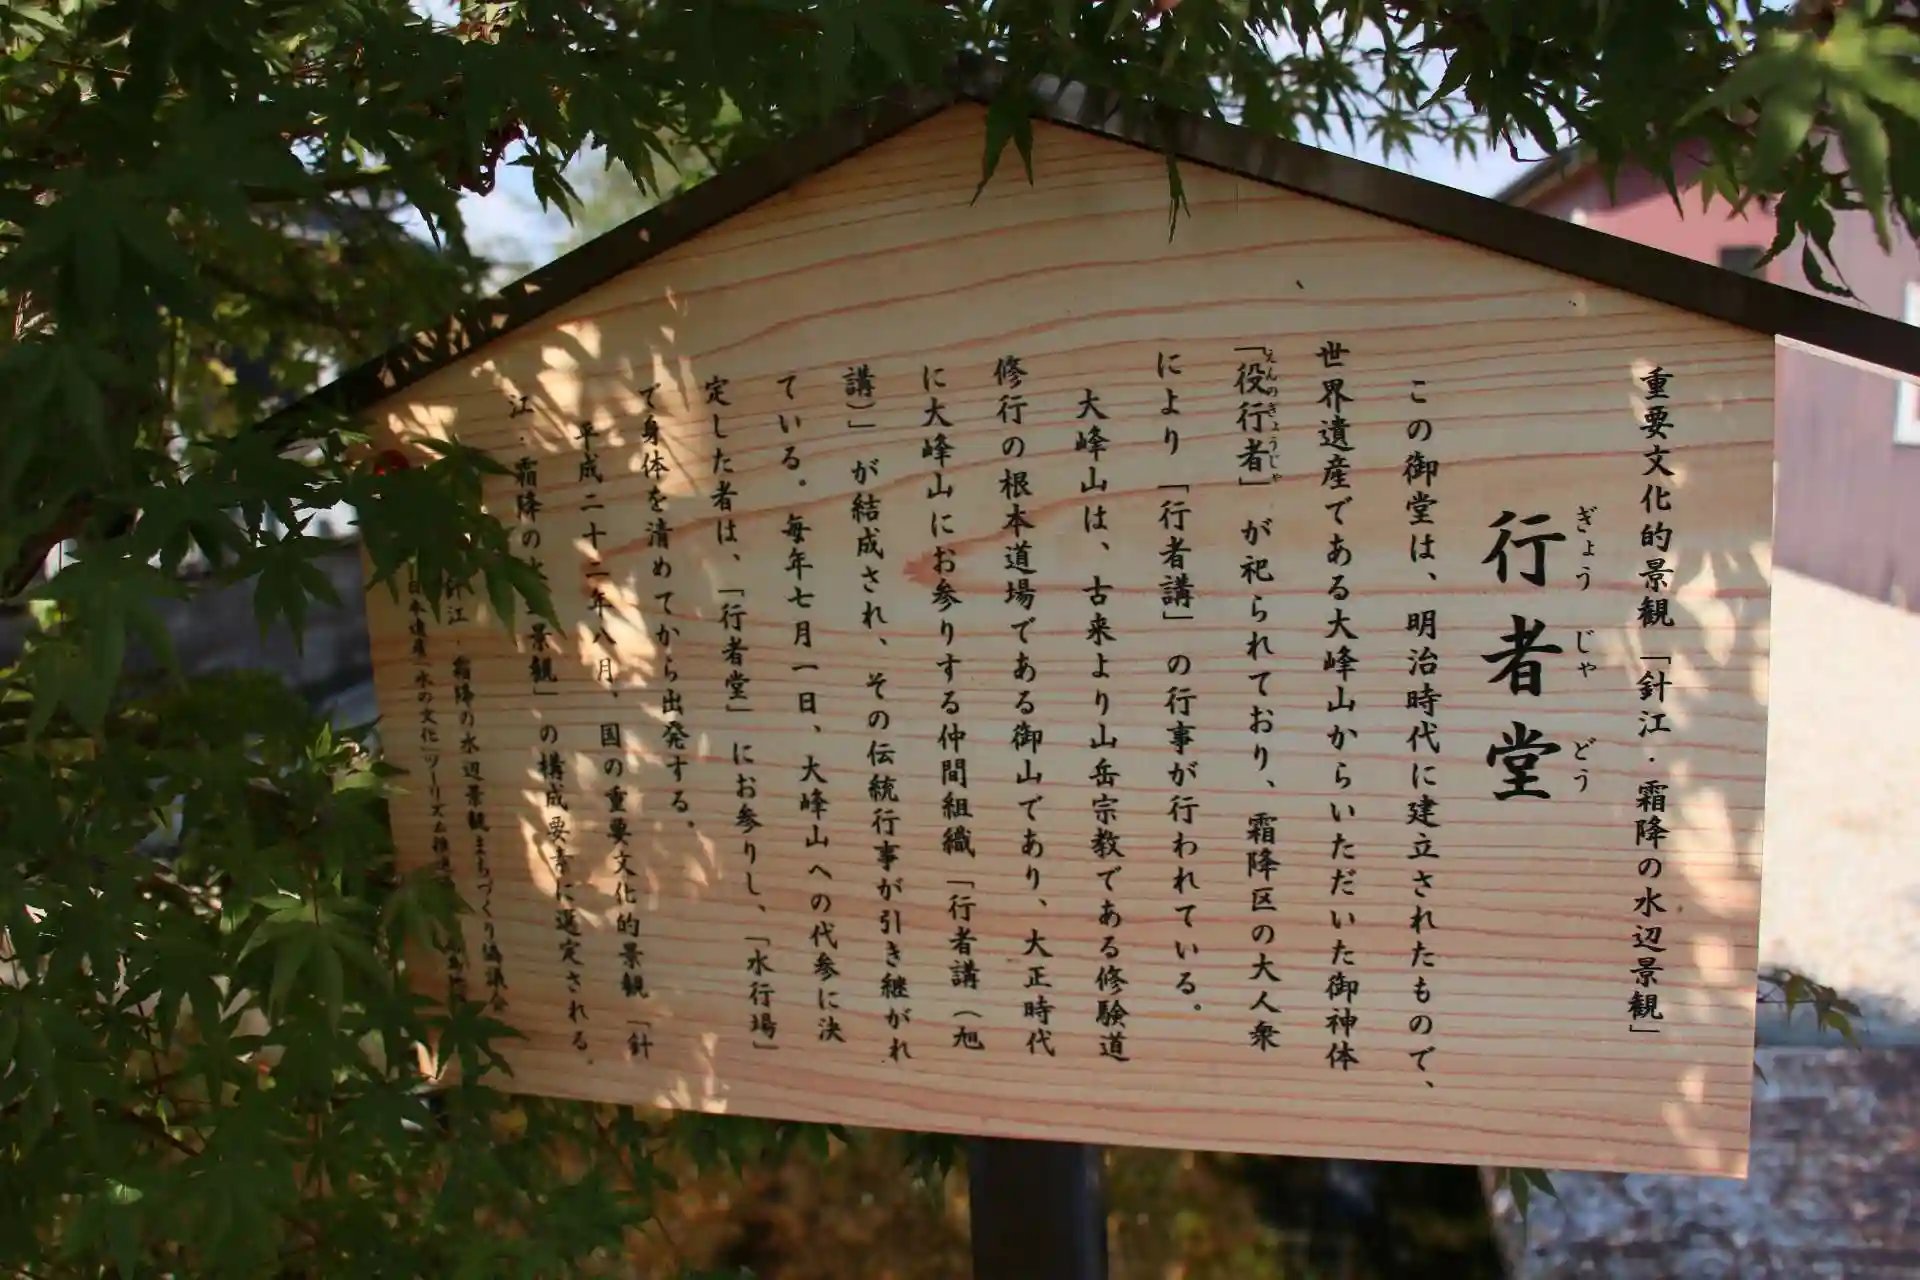 重要文化的景観「針江・霜降の水辺景観」
ぎょう じゃ どう
行者堂
この御堂は、明治時代に建立されたもので、
世界遺産である大峰山からいただいた御神体
えんのぎょうじゃ
「役行者」が祀られており、霜降区の大人衆
により「行者講」の行事が行われている。
大峰山は、古来より山岳宗教である修験道
修行の根本道場である御山であり、大正時代
に大峰山にお参りする仲間組織「行者講(旭
講)」が結成され、その伝統行事が引き継がれ
ている。毎年七月一日、大峰山への代参に決
定した者は、「行者堂」にお参りし、「水行場」
で身体を清めてから出発する。
平成二十二年八月、国の重要文化的景観「針
江・霜降の水辺景観」の構成要素に選定される。
針江・霜降の水辺景観まちづくり協議会
日本遺産「水の文化」ツーリズム推進